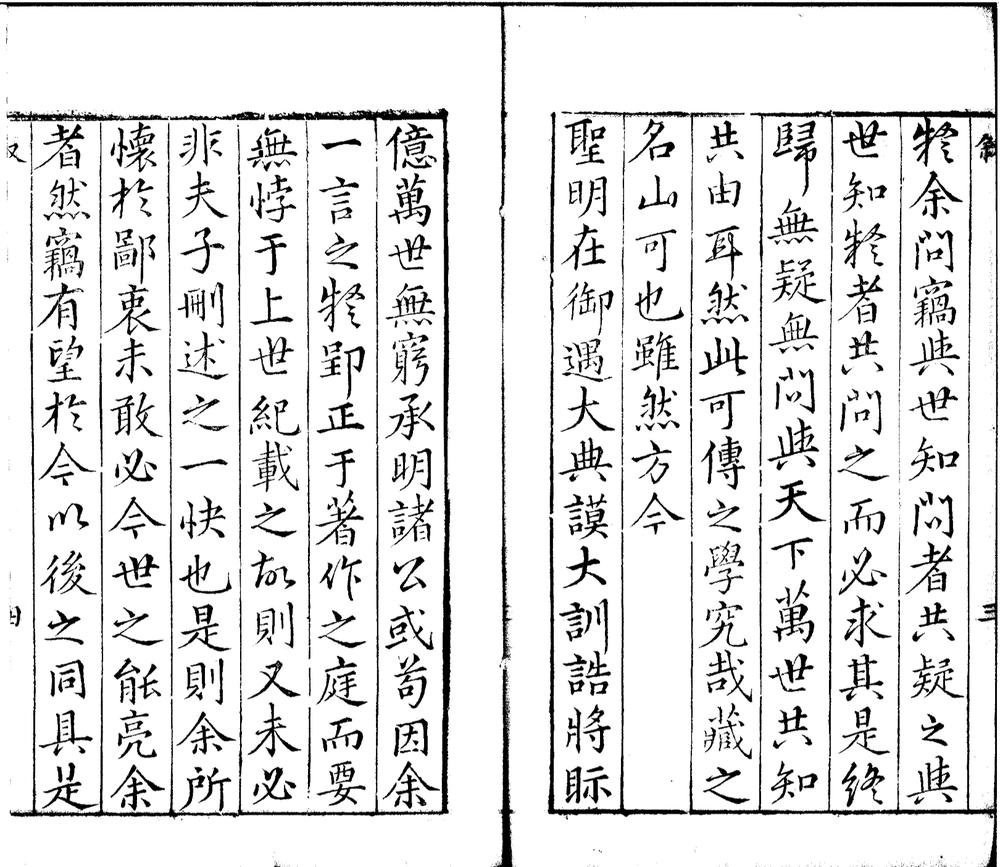 敘
三
疑余問竊與世知問者共疑之與
世知疑者共問之而必求其是終
歸無疑無問與天下萬世共知
共由耳然此可傳之學究哉藏之
名山可也雖然方今
聖明在御遇大典謨大訓誥將眎
億萬世無窮承明諸公或茍因余
一言之疑郢正于著作之庭而要
無悖于上世紀載之故則又未必
非夫子刪述之一快也是則余所
懷於鄙衷未敢必今世之能亮余
者然竊有望於今以後之同具是
四